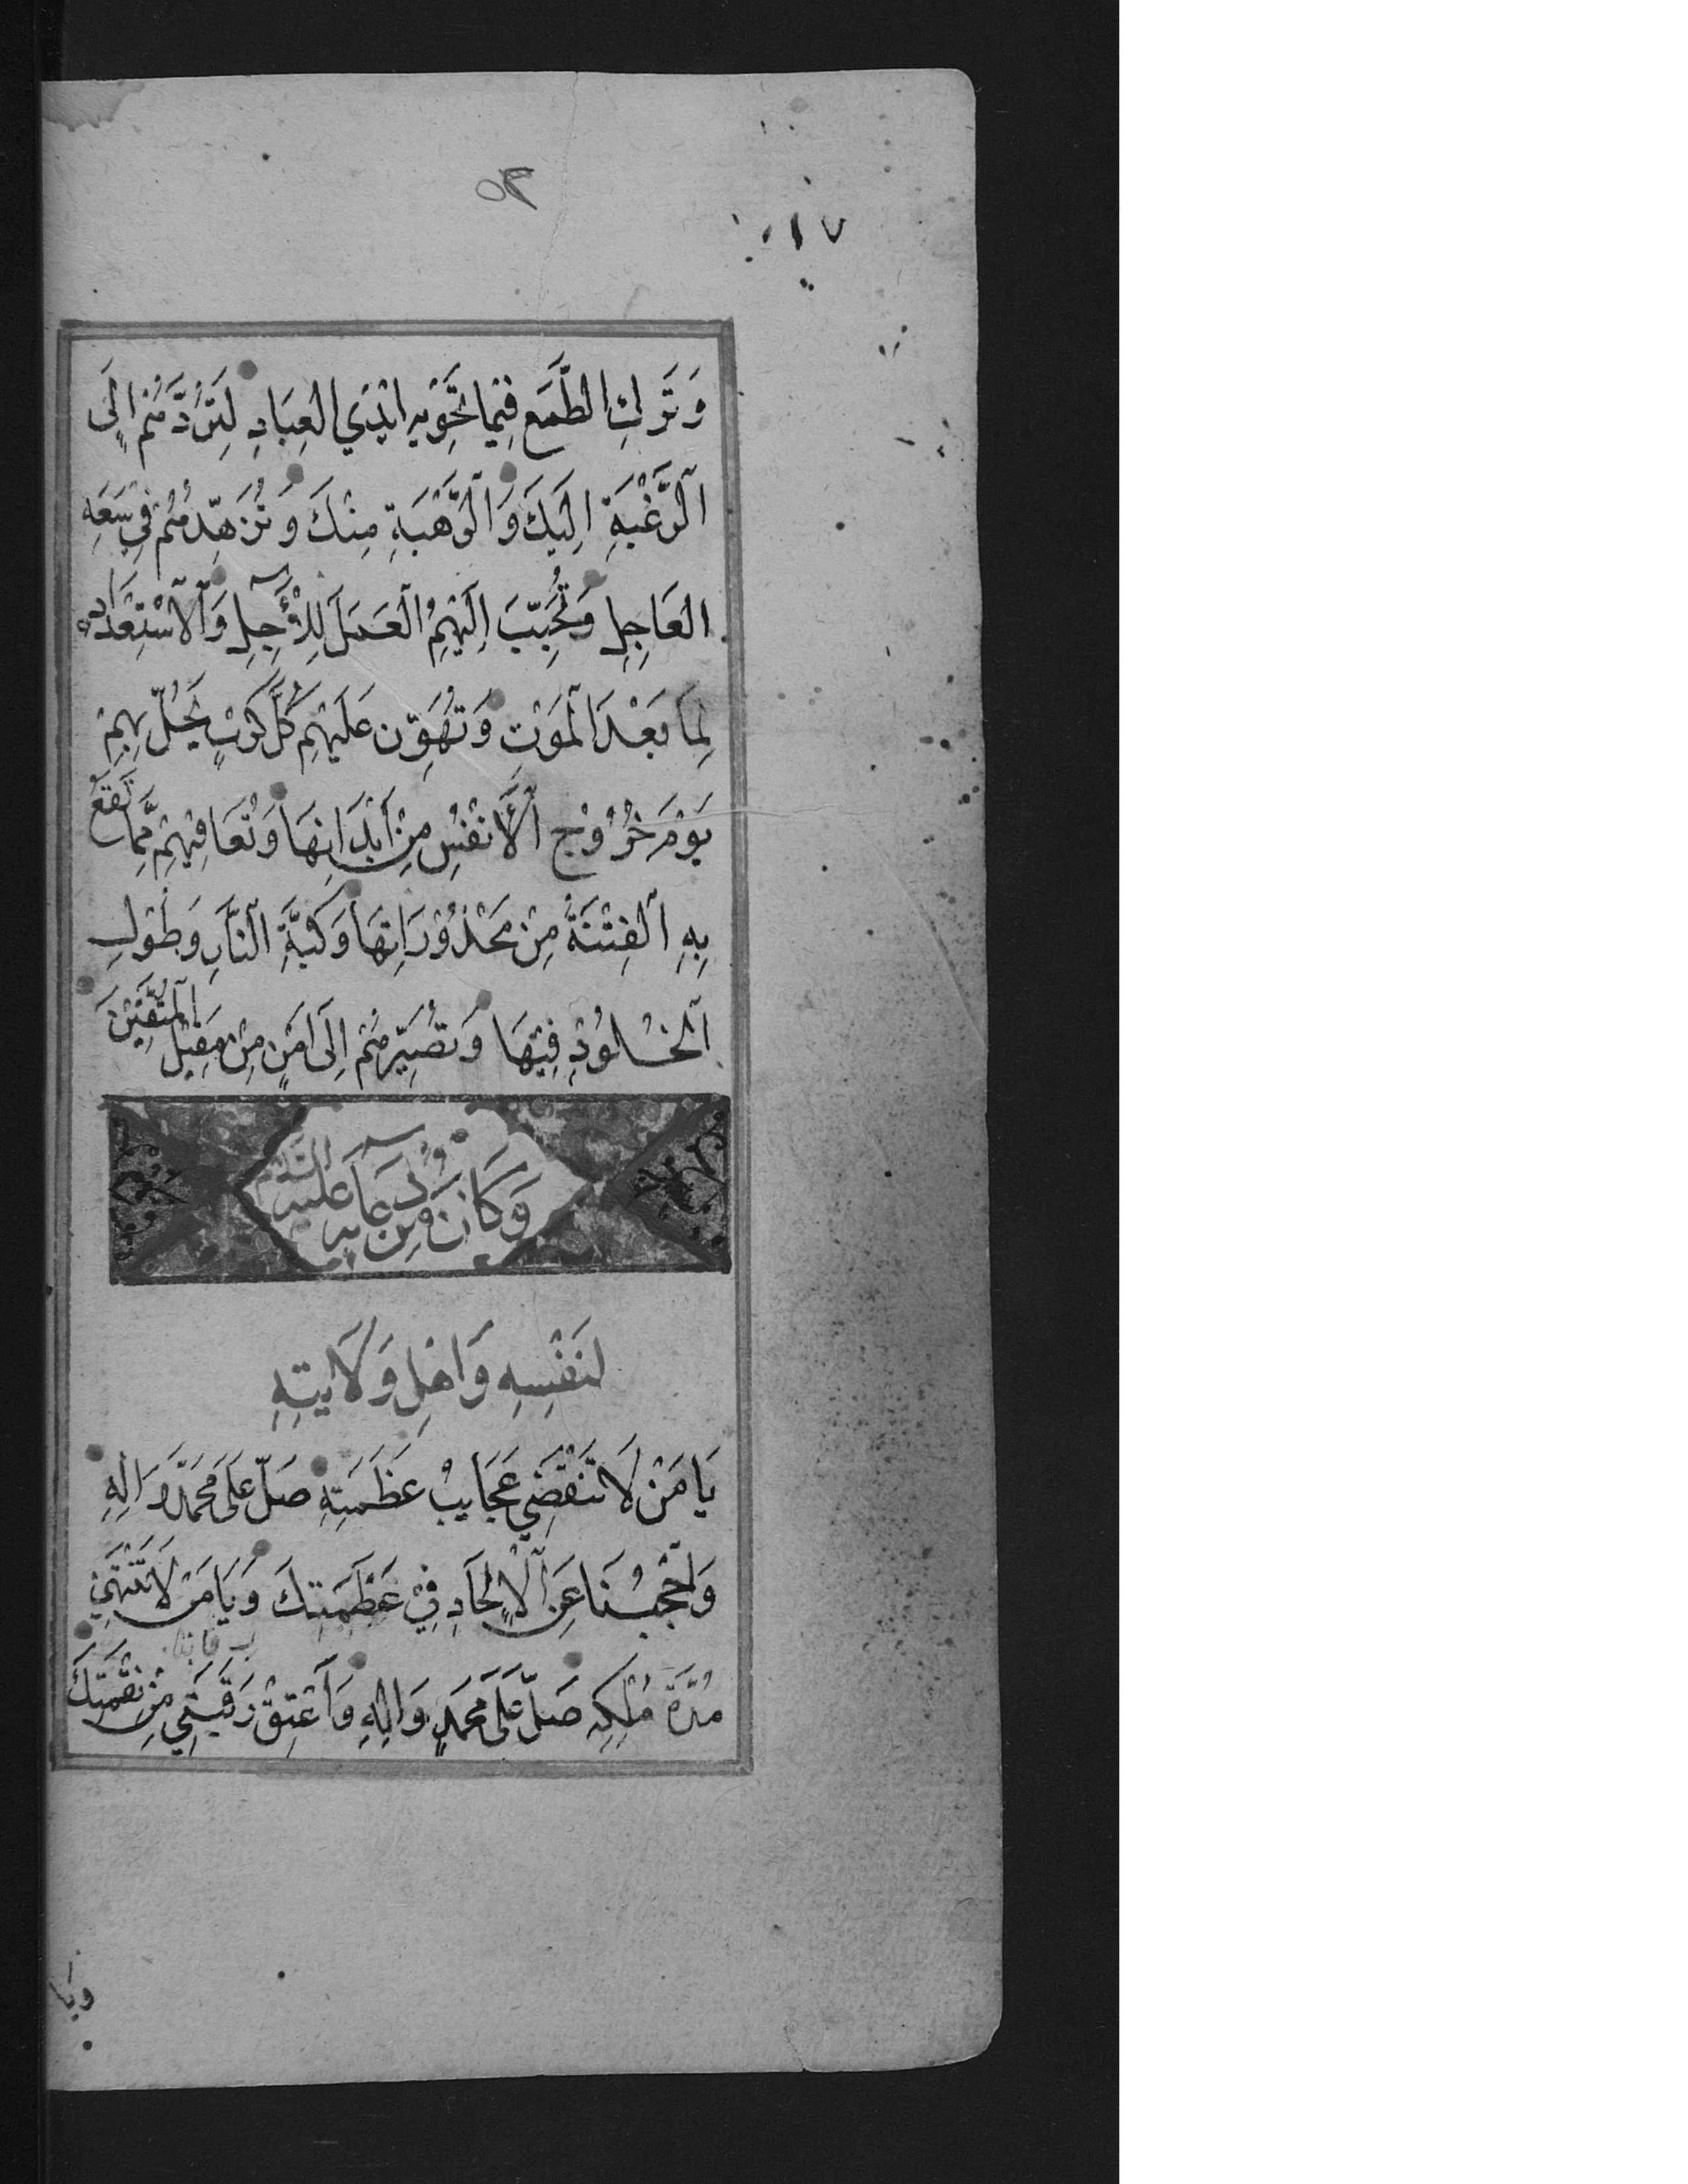 ٥٣
وَتَركِ الطَّمَعِ فِيمَا تَحْوِيهِ ايْدِي العِبَادِ لِتَرُدَّهُمْ اِلَى
اَلرَّغْبَةِ اِلَيْكَ وَالرَّهْبَةِ مِنْكَ وَتُزَهِّدَهُمْ فِي سَعَةِ
العَاجِلِ وَتُحَبِّبَ اِلَيْهِمُ الْعَمَلَ لِلْآجِلِ وَالْاسْتِعْدَادَ
لِمَا بَعْدَ الْمَوْتِ وَتُهَوِّنَ عَلَيْهِمْ كُلَّ كَرْبٍ يَحُلُّ بِهِمْ
يَوْمَ خُرُوْجِ الْأَنْفُسِ مِنْ أَبْدَانِهَا وَتُعَافِيَهِمْ مِمَّا تَقَعُ
بِهِ الْفِتْنَةُ مِنْ مَحْذُوْرَاتِهَا وَكَبَّةِ النَّارِ وَطُوْلِ
اَلْخُلُوْدِ فِيْهَا وَتُصَيِّرَهُمْ اِلَى اَمْنٍ مِنْ مَقِيْلِ الْمُتَّقِيْنَ
وَكَانَ مِنْ دُعَآئِهِ عَلَيْهِ السَّلَامُ
لنَفْسِهِ وَاهْلِ وَلَايَتِهِ
يَا مَنْ لَا تَنْقَضِي عَجَايبُ عَظَمَتِهِ صَلِّ عَلَى مُحَمَّدٍ وَالِهِ
وَاحْجُبْنَا عَنِ الْاِلْحَادِ فِيْ عَظَمَتِكَ وَيَا مَنْ لَا تَنْتَهِيْ
مُدَّةُ مُلْكِهِ صَلِّ عَلَى مُحَمَّدٍ وَالِهِ وَأَعْتِقْ رَقَبَتِي مِنْ نِقْمَتِكَ
وَيَا